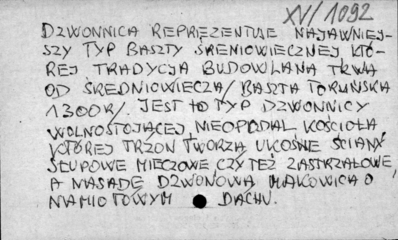 XV/1092
DZWONNICA REPREZENTUJE NAJAWNIEJ-
SZY TYP BASZTY ŚRENIOWIECZNEJ KTÓ-
REJ TRADYCJA BUDOWLANA TRWA
OD ŚREDNIOWIECZA/ BASZTA TORUŃSKA
1300R/. JEST TO TYP DZWONNICY
WOLNOSTOJĄCEJ, NIEOPODAL KOŚCIOŁA,
KTÓREJ TRZON TWORZĄ UKOŚNE ŚCIANY
SŁUPOWE MIECZOWE, CZY TEŻ ZASTRZAŁOWE,
A NASADĘ DZWONOWA MAKOWICA O
NAMIOTOWYM DACHU.